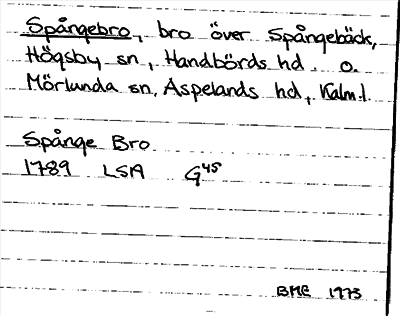 Spångebro, bro över Spångebäck,
Högsby sn, Handbörds hd. o.
Mörlunda sn, Aspelands hd, Kalm.l.
Spånge Bro
1789 LSA G45
BME 1973